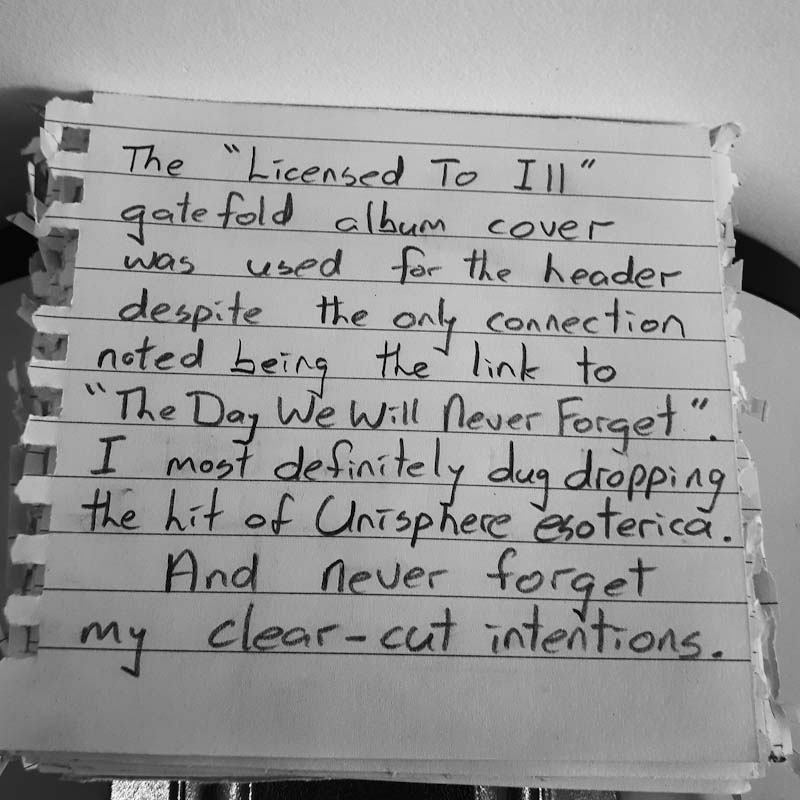 The "Licensed To Ill"
gatefold album cover
was used for the header
despite the only connection
noted being the link to
"The Day We Will Never Forget".
I most definitely dug dropping
the hit of Unisphere esoterica.
And never forget
my clear-cut intentions.